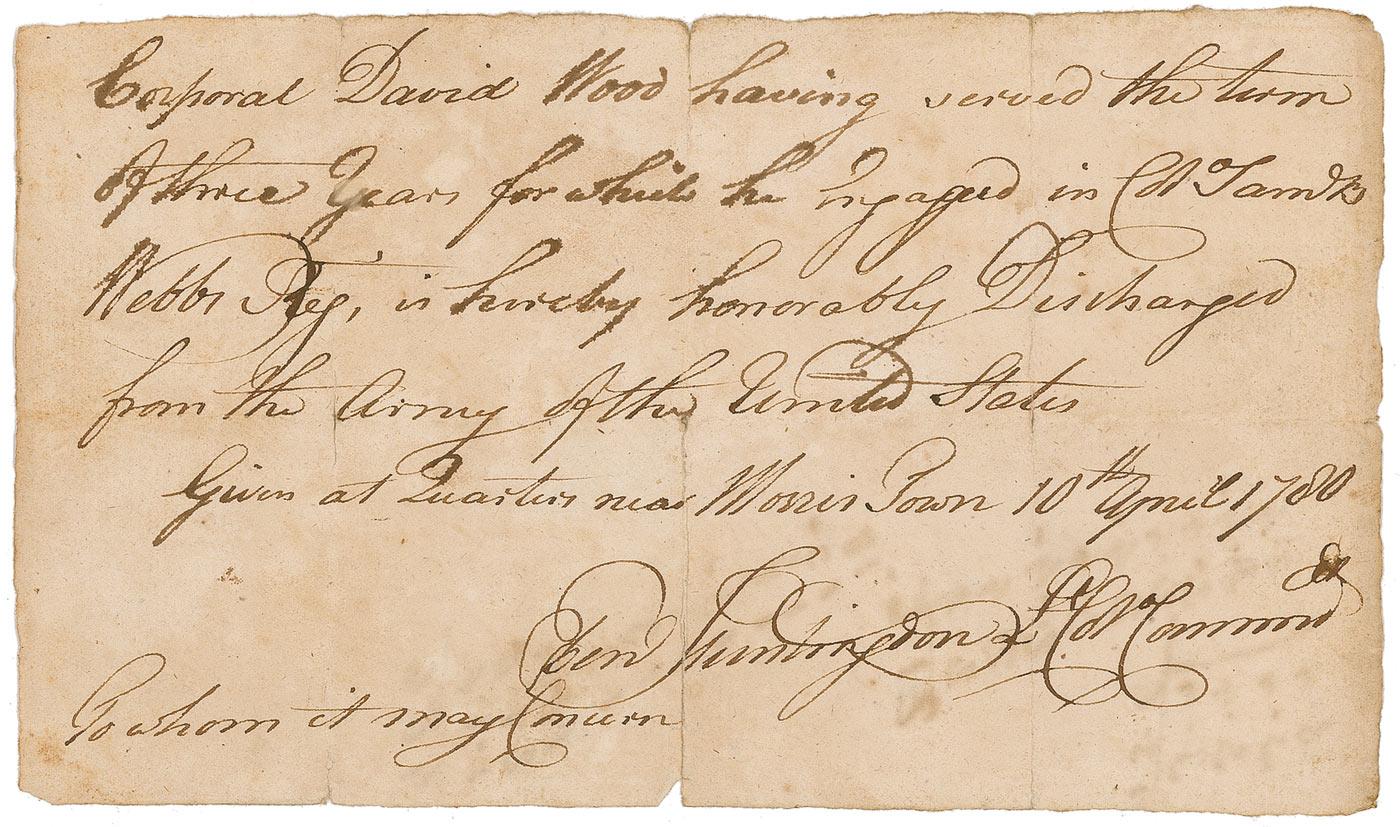 Corporal David Wood having served the term
of three Years for which he Engaged in Col Sam B
Webbs Reg, is hereby honorably Discharged
from the Army of the United States
Given at Quarters near Morris Town 10th April 1780
Eben Huntingdon Lt Col Commdt
To whom it may Concern